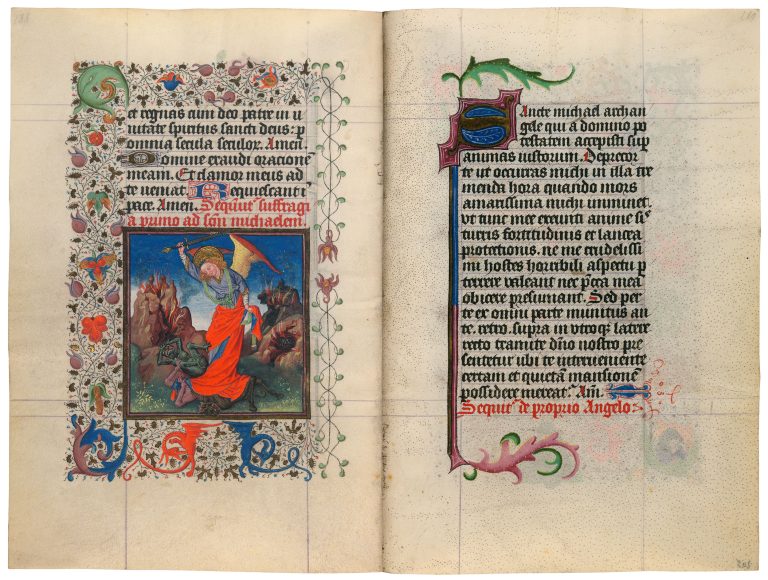 et regnas cum deo patre in u
nitate spiritus sancti deus: p
omnia secula seculor. Amen.
Domine exaudi oratione
meam. Et clamor meus ad
te veniat. Requiescant i
pace. Amen. Sequunt suffragi
a primo ad scm michaelem.
Sancte michael archan
gele qui a domino po
testatem accepisti sup
animas iustorum. Deprecor
te ut occurras michi in illa tre
menda hora quando mors
amarissima michi imminet.
Ut tunc mee exeunti anime sis
turris fortitudinis et lancea
protectionis. ne me crudelissi
mi hostes horribili aspectu p
terrere valeant nec pcca mea
obicere presumant. Sed per
te ex omni parte munitus an
te. retro. supra in utroque latere
recto tramite dno nostro pre
sentetur ubi te interveniente
certam et quietam mansione
possidere mereat. Am.
Sequitr de proprio Angelo.